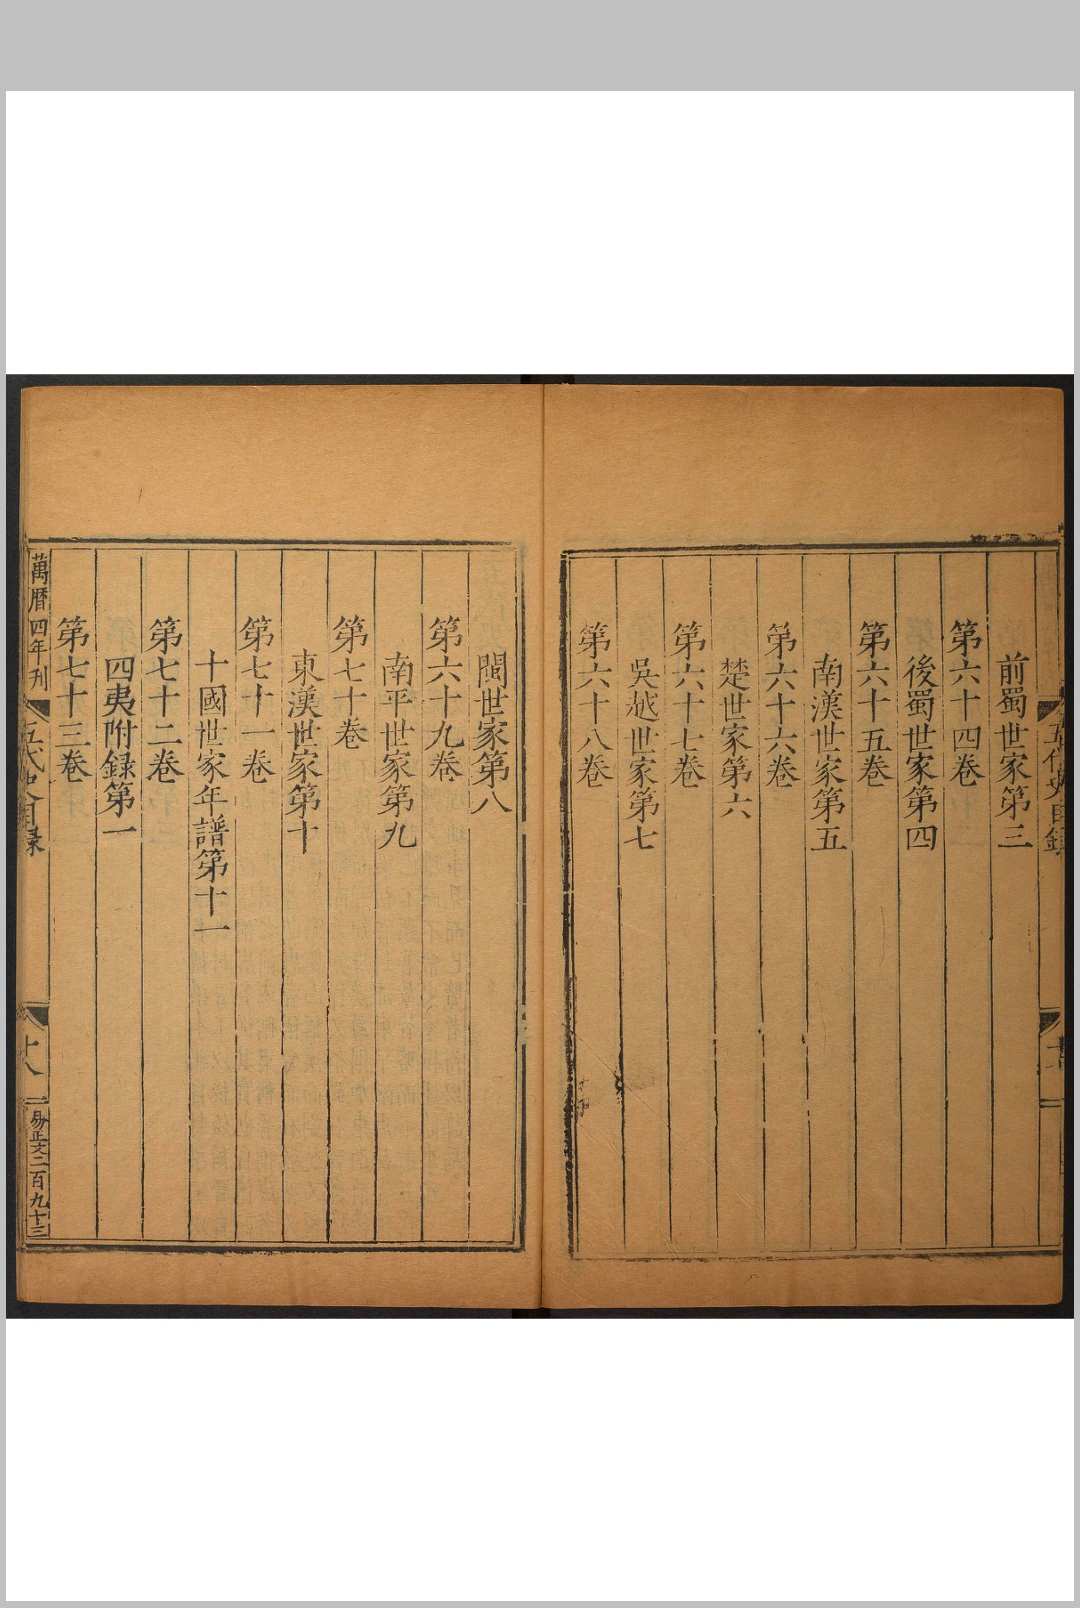 前蜀世家第三
第六十四卷
後蜀世家第四
第六十五卷
南漢世家第五
第六十六卷
楚世家第六
第六十七卷
吳越世家第七
第六十八卷
閩世家第八
第六十九卷
南平世家第九
第七十卷
東漢世家第十
第七十一卷
十國世家年譜第十一
第七十二卷
四夷附録第一
第七十三卷
萬曆四年刋
五代史目録
十八
易正文二百九十三